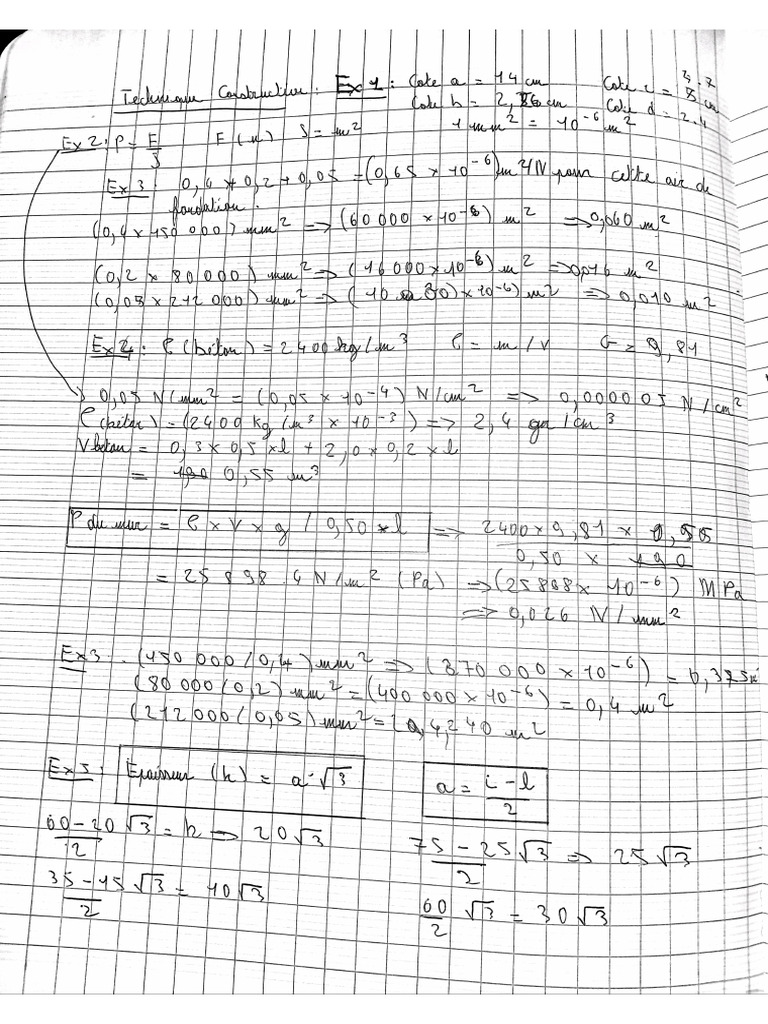 Technique Constructive : Ex 1 : Cote a = 14 cm
Cote b = 2,86 cm Cote d = 2.4
1 mm² = 10⁻⁶ m²
Ex 2 : P = F/S F (N) S = m²
Ex 3 : 0,4 + 0,2 + 0,05 = (0,65 × 10⁻⁶) m²/N pour cette air de
fondation.
(0,4 × 150 000) mm² => (60000 × 10⁻⁶) m² => 0,060 m²
(0,2 × 80000) mm² => (16000 × 10⁻⁶) m² => 0,016 m²
(0,05 × 212 000) mm² => × 10⁻⁶) m² => 0,010 m²
Ex 4 : ρ (béton) = 2400 kg/m³ ρ = m/V G = 9,81
0,05 N/mm² = (0,05 × 10⁻⁴) N/cm² => 0,000005 N/cm²
ρ (béton) = (2400 kg/m³ × 10⁻³) => 2,4 /cm³
V béton = 0,3 × 0,5 × l + 2,0 × 0,2 × l
= 0,55 m³
P du mur = ρ × V × g / 0,50 × l => 2400 × 9,81 × 0,55 / 0,50 ×
= 25898.4 N/m² (Pa) => (25898 × 10⁻⁶) MPa
=> 0,026 N/mm²
Ex 3 : (150 000 / 0,4) mm² => (370 000 × 10⁻⁶) = 0,375
(80 000 / 0,2) mm² = (400 000 × 10⁻⁶) = 0,4 m²
(212 000 / 0,05) mm² = 4,240 m²
Ex 5 : Epaisseur (h) = a·√3 a = (L – l)/2
(60 – 20√3)/2 = h → 20√3 (75 – 25√3)/2 => 25√3
(35 – 15√3)/2 = 10√3 60/2 √3 = 30√3